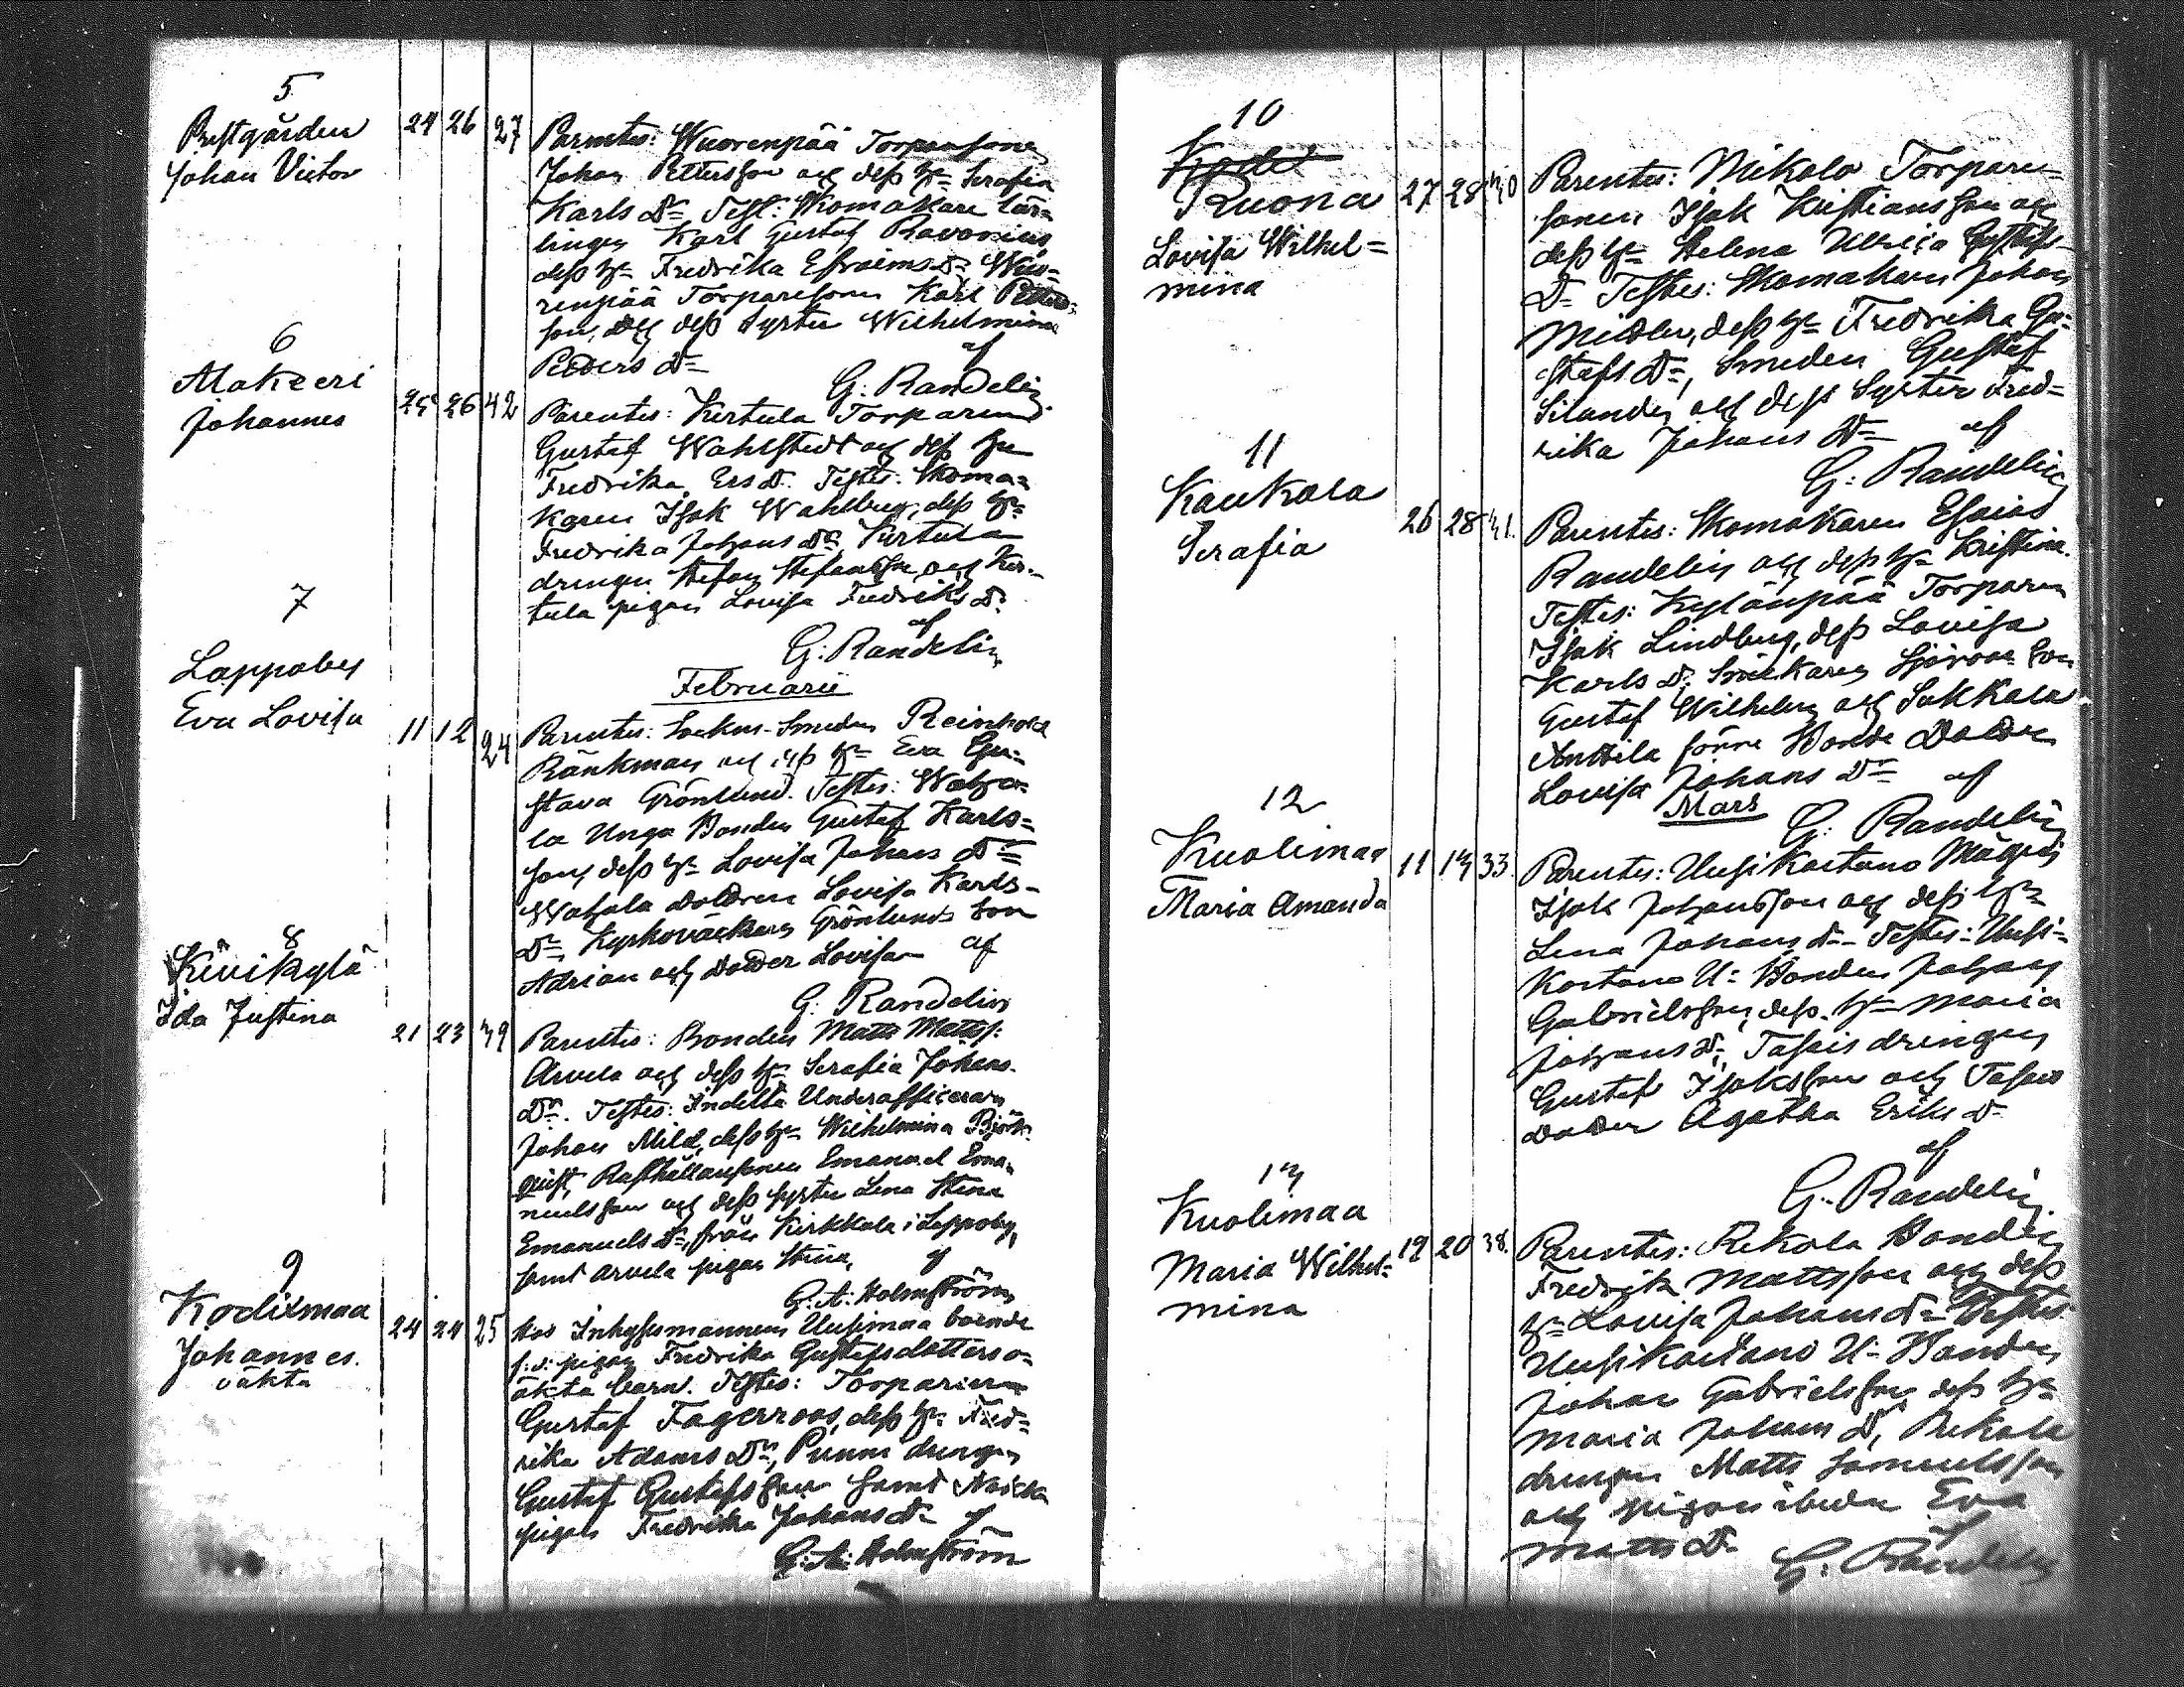 5
Prestgården
Johan Victor
24 26 27
Parentes: Wuorenpää Torparesonen
Johan Pettersson och dess h:u Serafia
Karls D:r Test: Skomakare lär=
lingen Karl Gustaf Ravonius,
dess h:u Fredrika Efraims D:r Wuo=
renpää Torparesonen Karl Petters=
son, och dess Syster Wilhelmina
Peders D:r af
G: Randelin
6
Alakeeri
Johannes
25 26 42
Parentes: Kertula Torparen
Gustaf Wahlstedt och dess hu
Fredrika Ers D. Testes: Skoma=
karen Isak Wahlberg, dess h:u
Fredrika Johans D:r, Kertula
drengen Stefan Stefansson och Ker=
tula pigan Lovisa Fredriks D:
af
G: Randelin
Februarii
7
Lappoby
Eva Lovisa
11 12 24
Parentes: Sockne-Smeden Reinhold
Ränkman och dess h:u Eva Gu=
stava Grönlund. Testes: Waha=
la Unga Bonden Gustaf Karls=
son, dess h:u Lovisa Johans D:r
Wahala Dottren Lovisa Karls=
D:r, Kyrkoväcktaren Grönlunds Son
Adrian och Dotter Lovisa af
G: Randelin
8
Kivikylä
Ida Justina
21 23 39
Parentes: Bonden Matts Mattss:
Arvela och dess h:u Serafia Johans
D:r. Testes: Indelta Underofficeraren
Johan Mild, dess h:u Wilhelmina Björk=
quist, Rusthållaresonen Emanuel Ema=
nuelsson och dess syster Lena Stina
Emanuels D:r, från Kirkkola i Lappoby,
samt Arvela pigan Stina, af
G: A: Holmström
9
Kodixmaa
Johannes.
oäkta
24 24 25
Hos Inhysesmannen Uusimaa boende
f: d: pigan Fredrika Gustafsdotters o=
äkta barn. Testes: Torparen
Gustaf Fagerroos, dess h:u Fred=
rika Adams D:r, drengen
Gustaf Gustafsson samt
pigan Fredrika Johans D:r af
G: A: Holmström
10
Kodi
Ruona
Lovisa Wilhel=
mina
27 28 30
Parentes: Mikola Torpare=
sonen Isak Kristiansson och
dess h:u Helena Ulrica Gustafs
D:r Testes: Skomakaren Johan
Midler, dess h:u Fredrika Gu=
stafs D:r, Smeden Gustaf
Silander och dess Syster Fred=
rika Johans D:r af
G: Randelin
11
Kaukola
Serafia
26 28 31.
Parentes: Skomakaren Esaias
Randelin och dess h:u Kristina.
Testes: Kylänpää Torparen
Isak Lindberg, dess Lovisa
Karls D: Snickaren Sjöroos Son
Gustaf Wilhelm och Sukkala
Anttila förre Bonde Dotter
Lovisa Johans D:r af
G: Randelin
Mars
12
Kuolimaa
Maria Amanda
11 13 33.
Parentes: Uusikartano Mågen
Isak Johansson och dess h:u
Lena Johans d:r Testes: Uusi=
kartano U: Bonden Johan
Gabrielsson, dess h:u Maria
Johans D:r, drengen
Gustaf Isaksson och
dotter Agatha Eriks D:r
af
G: Randelin
13
Kuolimaa
Maria Wilhel=
mina
19 20 38.
Parentes: Rekola Bonden
Fredrik Mattsson och dess
h:u Lovisa Johans d:r Testes:
Uusikartano U: Bonden
Johan Gabrielsson dess h:u
Maria Johans D:, Rekola
drengen Matts Samuelsson
och pigan ibidem Eva
Matts D: af
G: Randelin